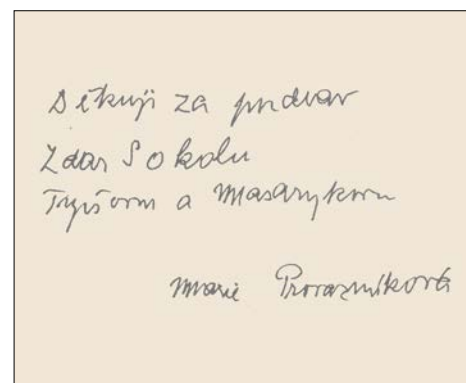 Děkuji za pozdrav
Zdar Sokolu
Tyršovu a Masarykovu
Marie Provazníková